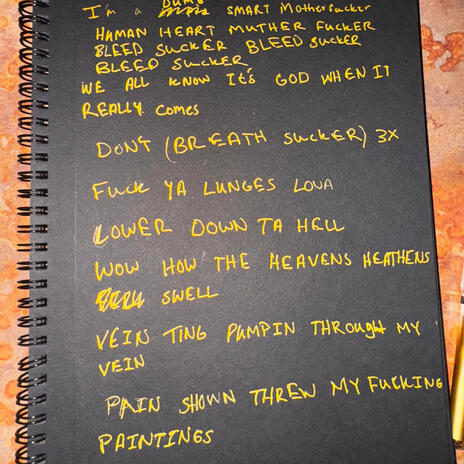 I'm a DUMB SMART MotherFucker
HUMAN HEART MUTHER FUCKER
BLEED SUCKER BLEED SUCKER
BLEED SUCKER
WE ALL KNOW IT'S GOD WHEN IT
REALLY COMES
DON'T (BREATH SUCKER) 3X
FUCK YA LUNGES LOVA
LOWER DOWN TA HELL
WOW HOW THE HEAVENS HEATHENS
SWELL
VEIN TING PUMPIN THROUGHT MY
VEIN
PAIN SHOWN THREW MY FUCKING
PAINTINGS